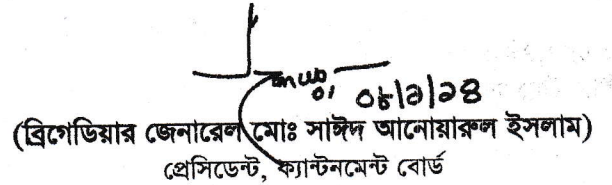 ০৮/৯/২৪
(ব্রিগেডিয়ার জেনারেল মোঃ সাঈদ আনোয়ারুল ইসলাম)
প্রেসিডেন্ট, ক্যান্টনমেন্ট বোর্ড